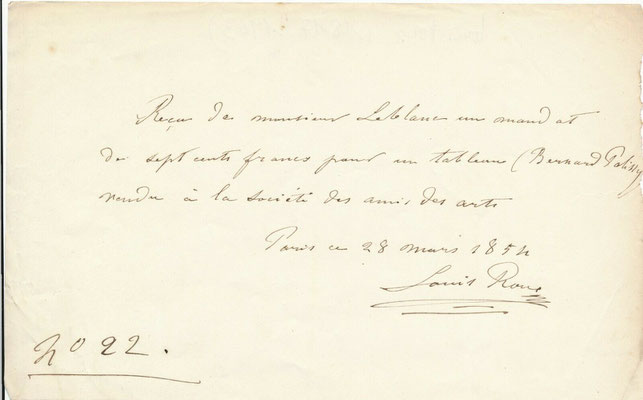 Reçu de monsieur Leblanc un mandat
de sept cents francs pour un tableau (Bernard Palissy
vendu à la société des amis des arts
Paris ce 28 mars 1854
Louis Roux
No 22.